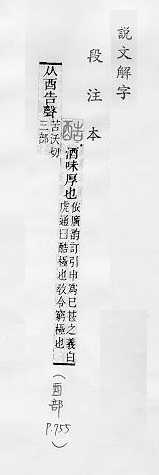 說文解字
段注本
酷
酒味厚也
依廣韵訂引申為已甚之義白
虎通曰酷極也教令窮極也
从酉告聲
苦沃切
三部
(酉部 P.755)